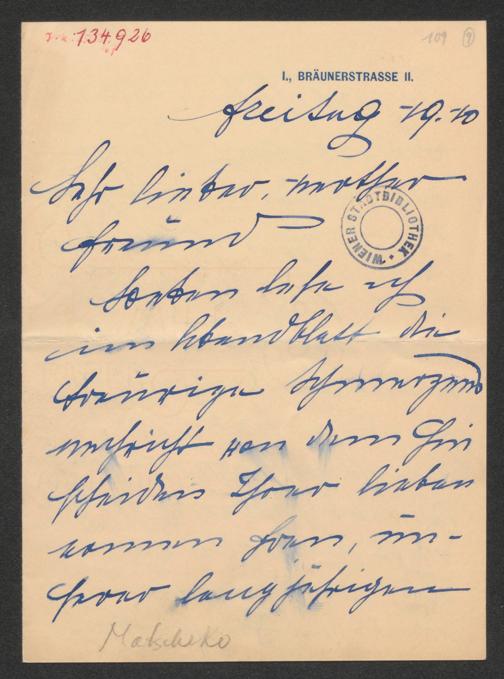 J.N. 134.926
109
I., BRÄUNERSTRASSE 11.
Freitag 19.10
Sehr lieber, werther
Freund
Soeben lese ich
im Abendblatt die
traurige Schmerzens
nachricht von dem Hin
scheiden Ihrer lieben
armen Frau, un-
serer langjährigen
WIENER STADTBIBLIOTHEK
Matscheko